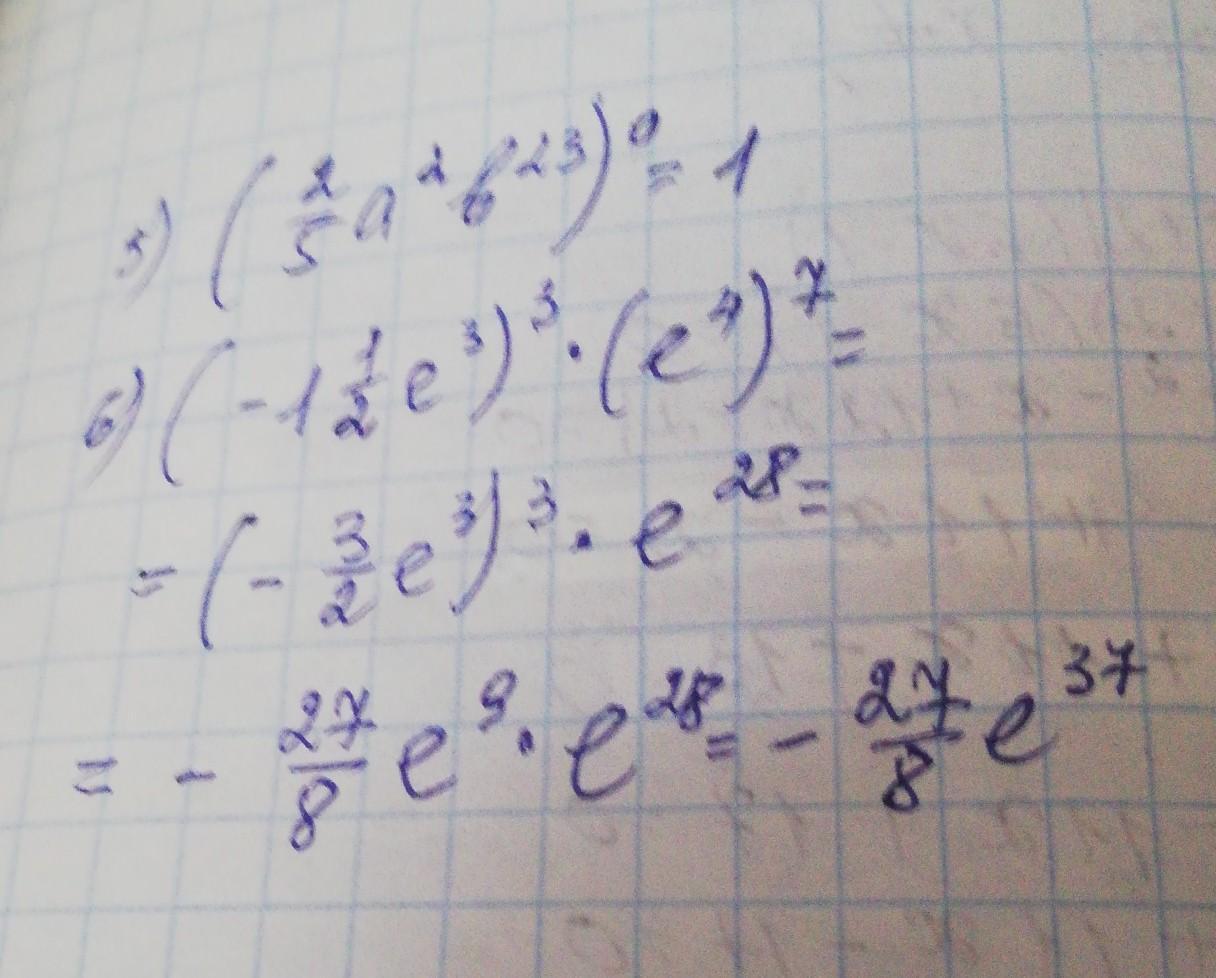 5) (2/5 a² b²³)⁰ = 1
6) (-1 1/2 e³)³ · (e⁴)⁷ =
= (- 3/2 e³)³ · e²⁸ =
= - 27/8 e⁹ · e²⁸ = - 27/8 e³⁷